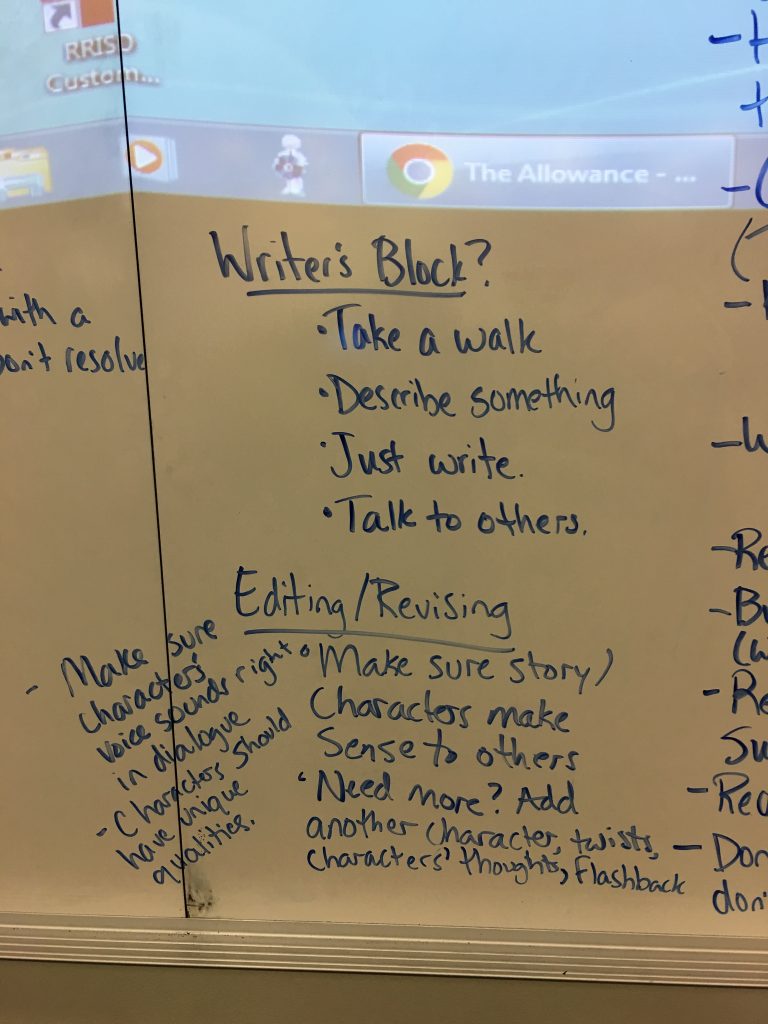 RRISD
Custom...
The Allowance - ...
with a
Don't resolve
Writer's Block?
• Take a walk
• Describe something
• Just write.
• Talk to others.
Editing/Revising
• Make sure story/
Characters make
Sense to others
• Need more? Add
another character, twists,
characters' thoughts, flashback
- Make sure
characters'
voice sounds right
in dialogue
- Characters should
have unique
qualities.
- Don
don'